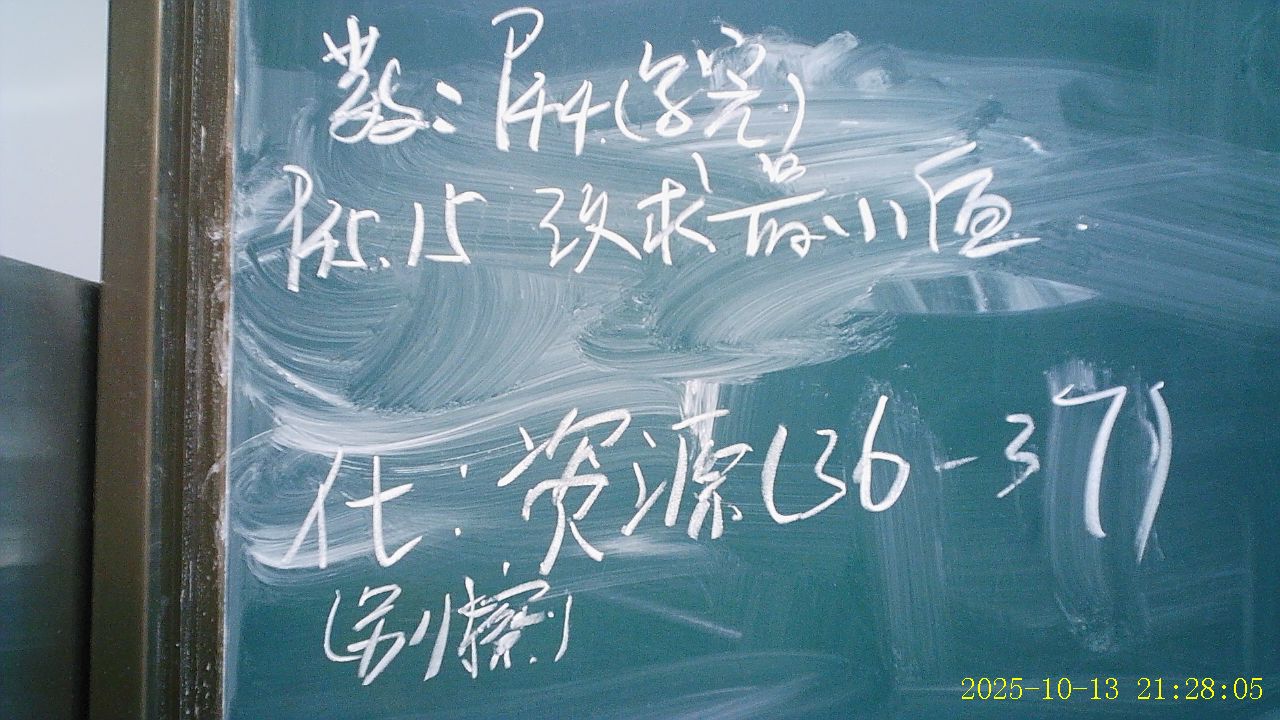 数：P44.(写完)
P45.15 改求最小值
化：资源(36-37)
(别擦)
2025-10-13 21:28:05